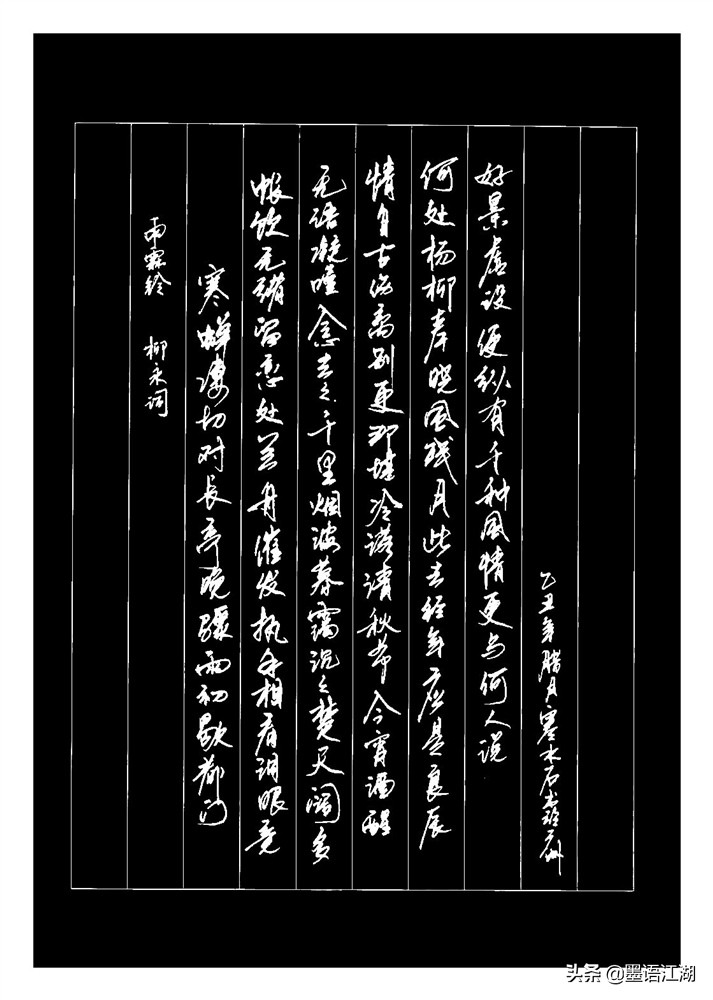 雨霖铃 柳永词
寒蝉凄切对长亭晚骤雨初歇都门
帐饮无绪留恋处兰舟催发执手相看泪眼竟
无语凝噎念去々千里烟波暮霭沉々楚天阔多
情自古伤离别更那堪冷落清秋节今宵酒醒
何处杨柳岸晓风残月此去经年应是良辰
好景虚设便纵有千种风情更与何人说
乙丑年腊月寒水石
头条 @墨语江湖